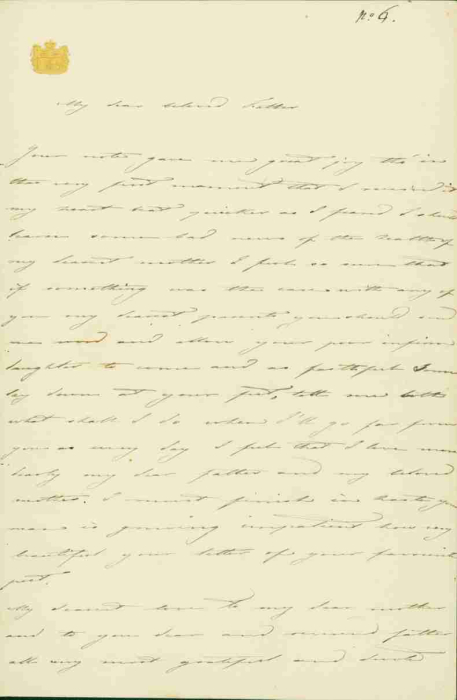 No. 6.
My dear beloved Father
Your note gave me great joy tho' in
the very first moment that I received it
my heart beat quicker as I feared I should
learn some bad news of the health of
my dearest mother I feel so sure that
if something was the case with any of
you my dearest parents you should send
me word and allow your poor
daughter to come and as faithful
lay down at your feet, tell me
what shall I do when I'll go far from
you as my say I feel that I love
my dear father and my beloved
mother. I must finish in hast
man is growing impatient how very
beautiful your letter of your favourite
poet.
My dearest love to my dear mother
and to you dear and revered father
all my most grateful and